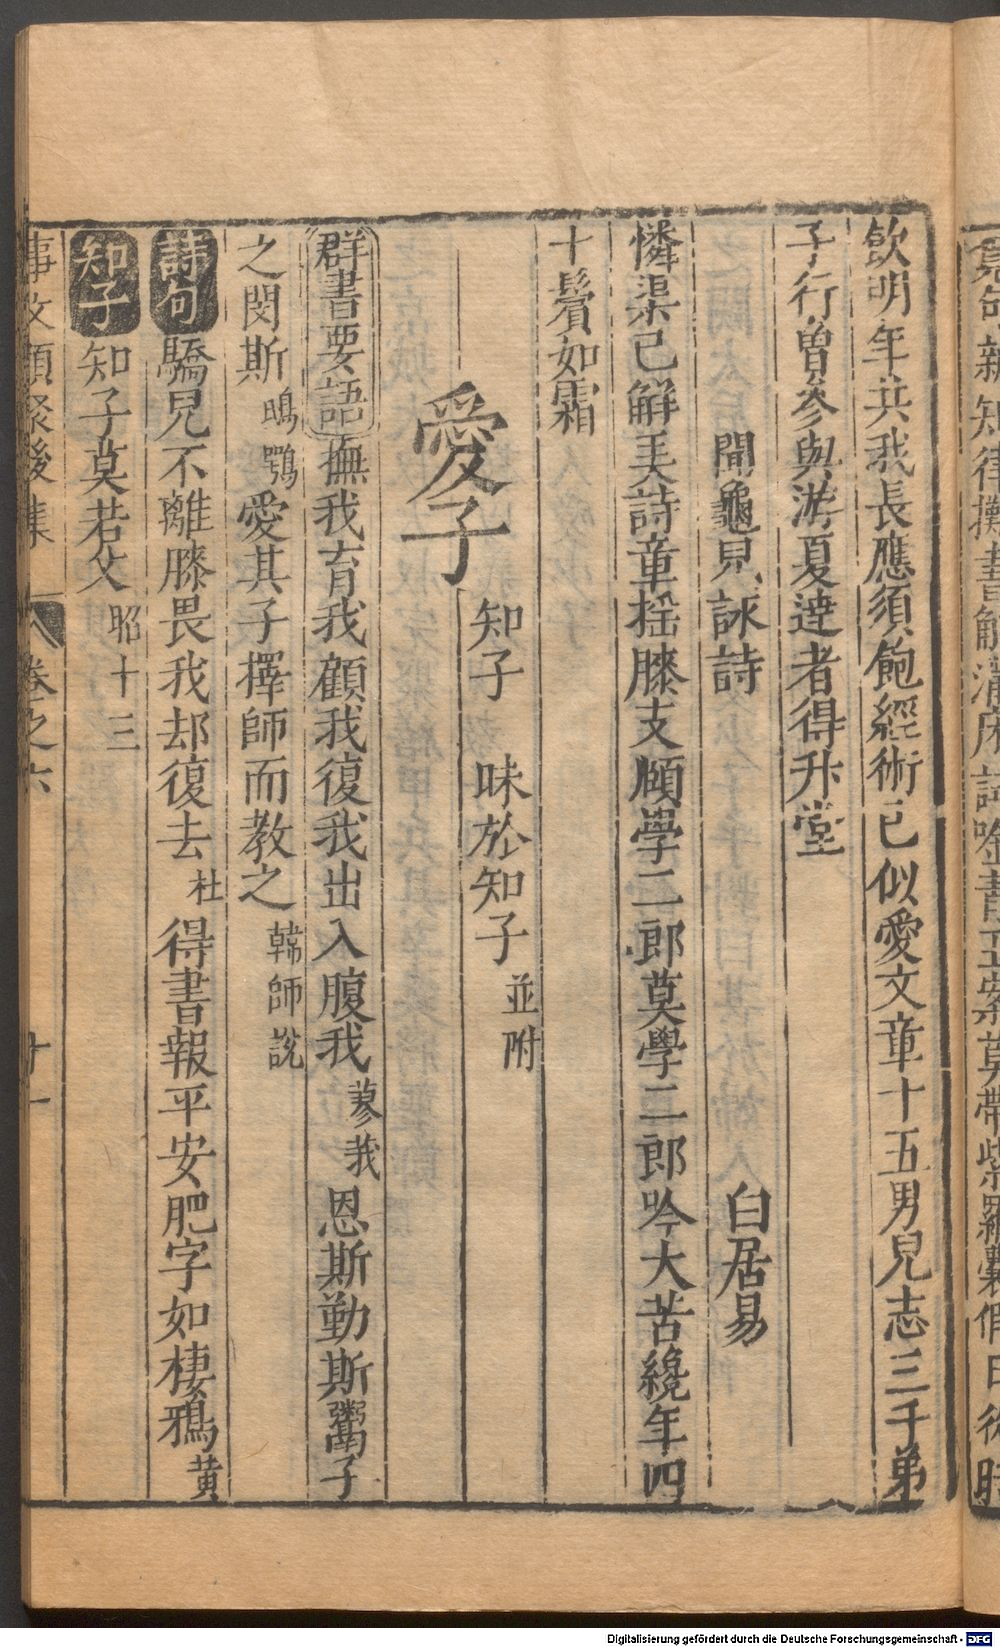 飲明年共我長應須飽經術已似愛文章十五男兒志三千弟
子行曾參與游夏達者得升堂
聞龜兒詠詩 白居易
憐渠已解美詩章搖膝支頤學二郎莫學二郎吟大苦纔年四
十鬢如霜
愛子 知子 昧於知子並附
群書要語 撫我育我顧我復我出入腹我蓼莪恩斯勤斯鬻子
之閔斯鴟鴞愛其子擇師而教之韓師說
詩句 驕兒不離膝畏我却復去杜得書報平安肥字如棲鴉黄
知子 知子莫若父昭十三
事文類聚後集 卷之六 十一
Digitalisierung gefördert durch die Deutsche Forschungsgemeinschaft - DFG